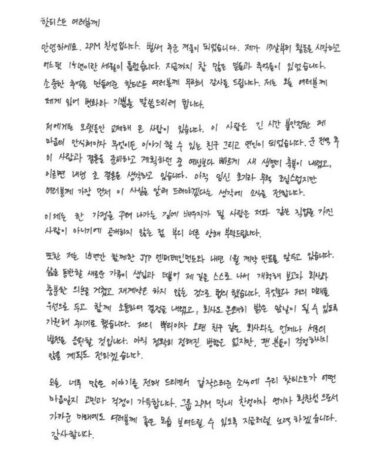 핫티스트 여러분께
안녕하세요. 2PM 찬성입니다. 벌써 추운 겨울이 되었습니다. 제가 17살부터 활동을 시작하고
어느덧 15년이란 세월이 흘렀습니다. 지금까지 참 많은 일들과 추억들이 있었습니다.
소중한 추억을 만들어준 핫티스트 여러분께 무한히 감사를 드립니다. 저는 오늘 여러분께
제게 있어 변화와 기쁨을 말씀드리려 합니다.
저에게는 오랫동안 교제해 온 사람이 있습니다. 이 사람은 긴 시간 불안정한 제
마음의 안식처이자 무엇이든 이야기 할 수 있는 친구 그리고 연인이 되었습니다. 군 전역 후
이 사람과 결혼을 준비하고 계획하던 중 예상보다 빠르게 새 생명의 축복이 내렸고,
이르면 내년 초 결혼을 생각하고 있습니다. 아직 임신 초기라 무척 조심스럽지만
여러분께 가장 먼저 이 사실을 알려 드려야겠다는 생각에 소식을 전합니다.
이제는 한 가정을 꾸려 나가는 길에 배우자가 될 사람은 저와 같은 직업을 가진
사람이 아니기에 공개하지 않는 점 부디 너른 양해 부탁드립니다.
또한 저는 15년간 함께한 JYP 엔터테인먼트와 내년 1월 계약 만료를 앞두고 있습니다.
삶을 동반할 새로운 가족이 생김과 더불어 제 길은 스스로 나서 개척해 보고자 회사와
충분한 의논을 거쳤고 재계약은 하지 않는 것으로 협의 했습니다. 무엇보다 저의 미래를
우선으로 두고 함께 소통하며 결정을 내렸고, 회사도 온전히 밝은 앞날이 될 수 있도록
기원해 주시기로 했습니다. 저의 뿌리이자 오랜 친구 같은 회사와는 언제나 서로의
발전을 응원할 것입니다. 아직 정확히 정해진 방향은 없지만, 팬 분들이 걱정하시지
않을 계획도 전하겠습니다.
오늘 너무 많은 이야기를 전해 드리면서 갑작스러운 소식에 우리 핫티스트가 어떤
마음일지 고민과 걱정이 가득합니다. 그룹 2PM 막내 찬성이자 연기자 황찬성으로서
가까운 미래에도 여러분께 좋은 모습 보여드릴 수 있도록 지금처럼 노력 하겠습니다.
감사합니다.